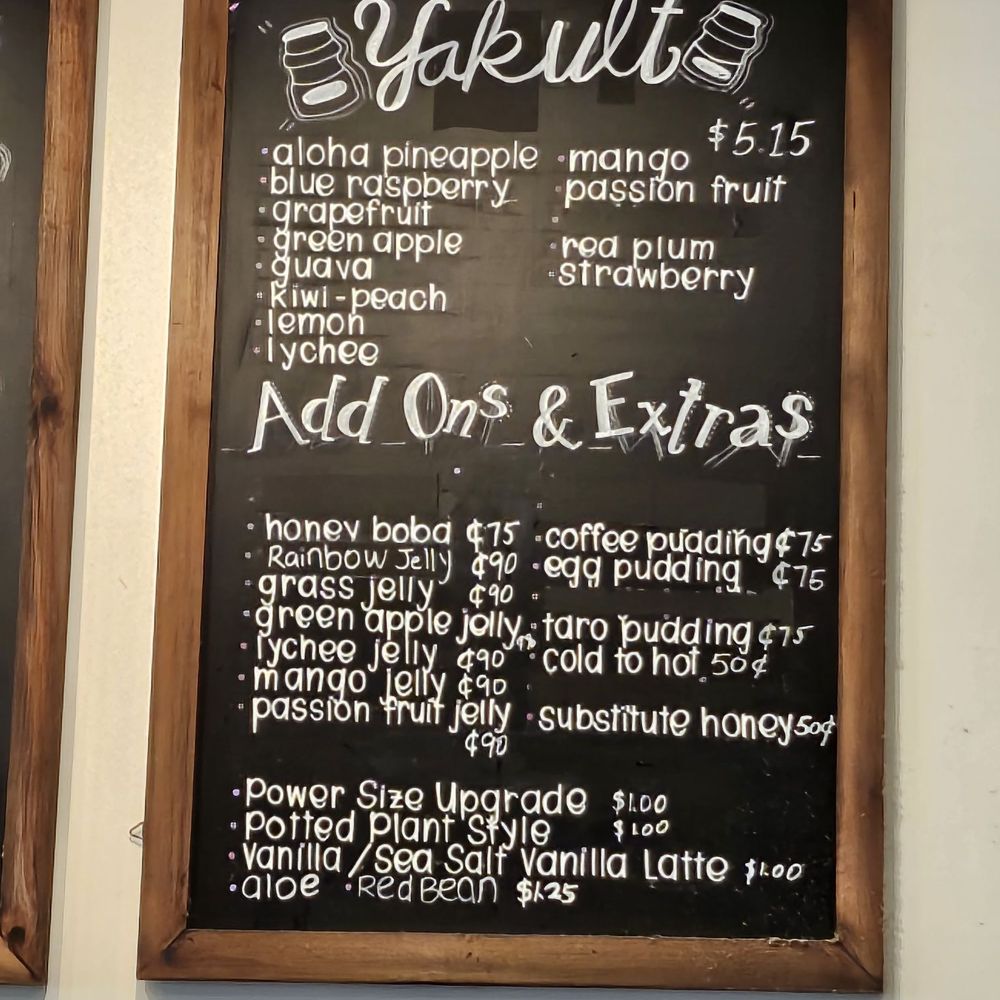 Yakult
$5.15
· aloha pineapple
· blue raspberry
· grapefruit
· green apple
· guava
· kiwi-peach
· lemon
· lychee
· mango
· passion fruit
· red plum
· strawberry
Add Ons & Extras
· honey boba ¢75
· Rainbow Jelly ¢90
· grass jelly ¢90
· green apple jelly
· lychee jelly ¢90
· mango jelly ¢90
· passion fruit jelly
¢90
· coffee pudding ¢75
· egg pudding ¢75
· taro pudding ¢75
· cold to hot 50¢
· substitute honey 50¢
· Power Size Upgrade $1.00
· Potted Plant Style $1.00
· Vanilla/Sea Salt Vanilla Latte $1.00
· aloe · Red Bean $1.25